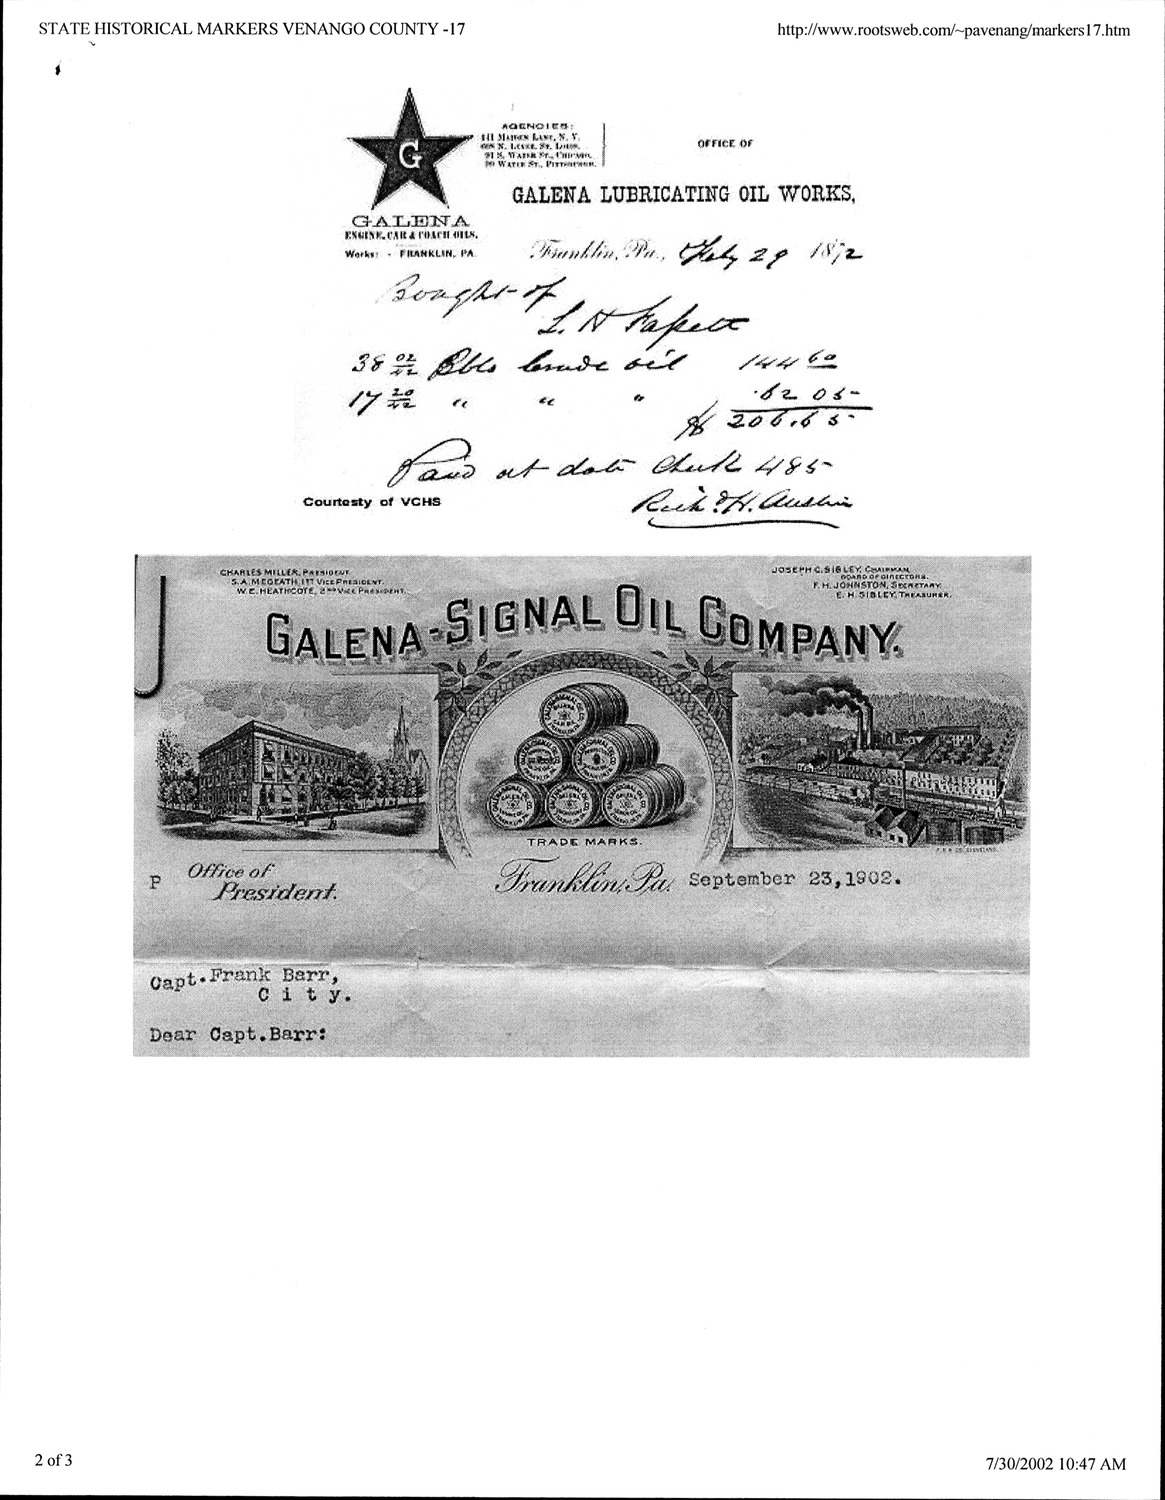 STATE HISTORICAL MARKERS VENANGO COUNTY -17
http://www.rootsweb.com/~pavenang/markers17.htm
G
GALENA
ENGINE, CAR & COACH OILS.
Works: - FRANKLIN, PA.
AGENCIES:
141 MAIDEN LANE, N. Y.
N. LEVEE, ST. LOUIS.
91 S. WATER ST., CHICAGO.
WATER ST., PITTSBURGH.
OFFICE OF
GALENA LUBRICATING OIL WORKS,
Franklin, Pa., Feby 29 1872
Bought of
L. H
38 02/42 Bbls Crude oil 144 60
17 20/42 " " " 62 05
$ 206.65
Paid at date Check 485
Richd H. Austin
Courtesty of VCHS
CHARLES MILLER, PRESIDENT.
S. A. MEGEATH, 1ST VICE PRESIDENT.
W. E. HEATHCOTE, 2ND VICE PRESIDENT.
JOSEPH C. SIBLEY, CHAIRMAN,
BOARD OF DIRECTORS.
F. H. JOHNSTON, SECRETARY.
E. H. SIBLEY, TREASURER.
GALENA-SIGNAL OIL COMPANY.
TRADE MARKS.
P
Office of
President.
Franklin, Pa. September 23,1902.
Capt.Frank Barr,
C i t y.
Dear Capt.Barr:
2 of 3
7/30/2002 10:47 AM